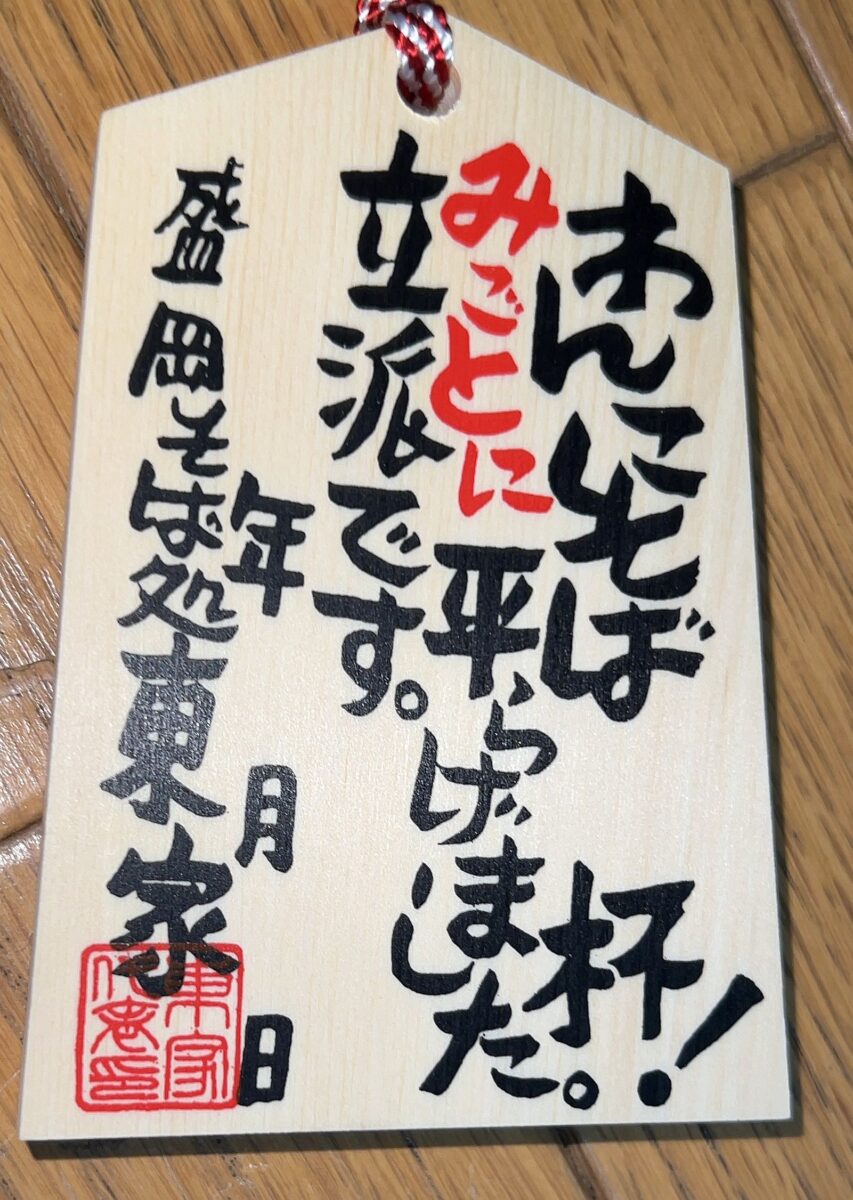 わんこそば　杯！
みごとに平らげました。
立派です。
年　月　日
盛岡そば処東家
東家
代表印